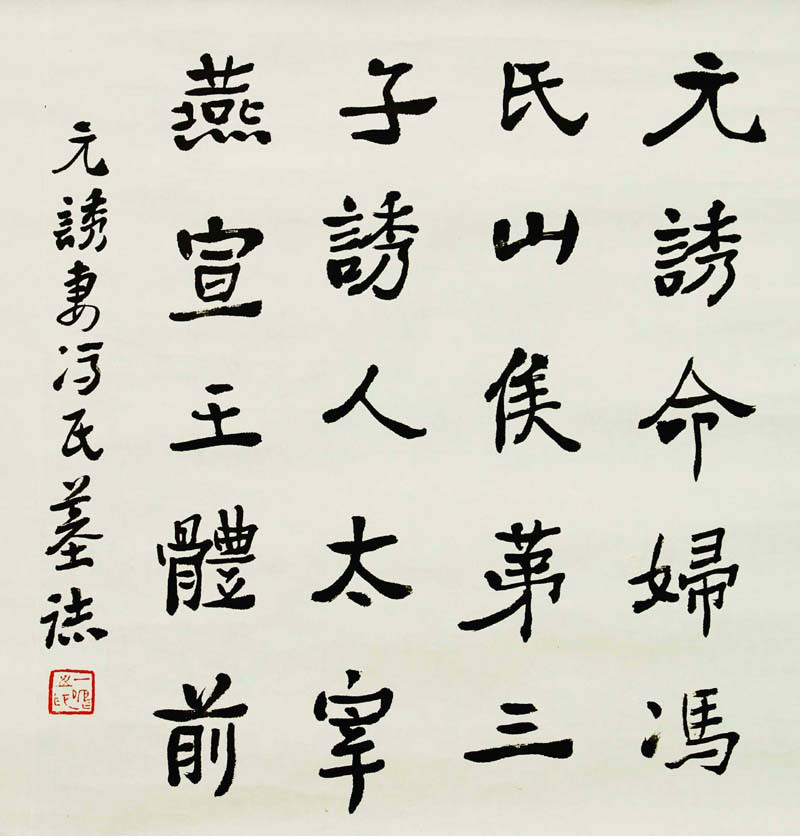 元誘命婦馮
氏山侯苐三
子誘人太宰
燕宣王體前
元誘妻馮氏墓誌